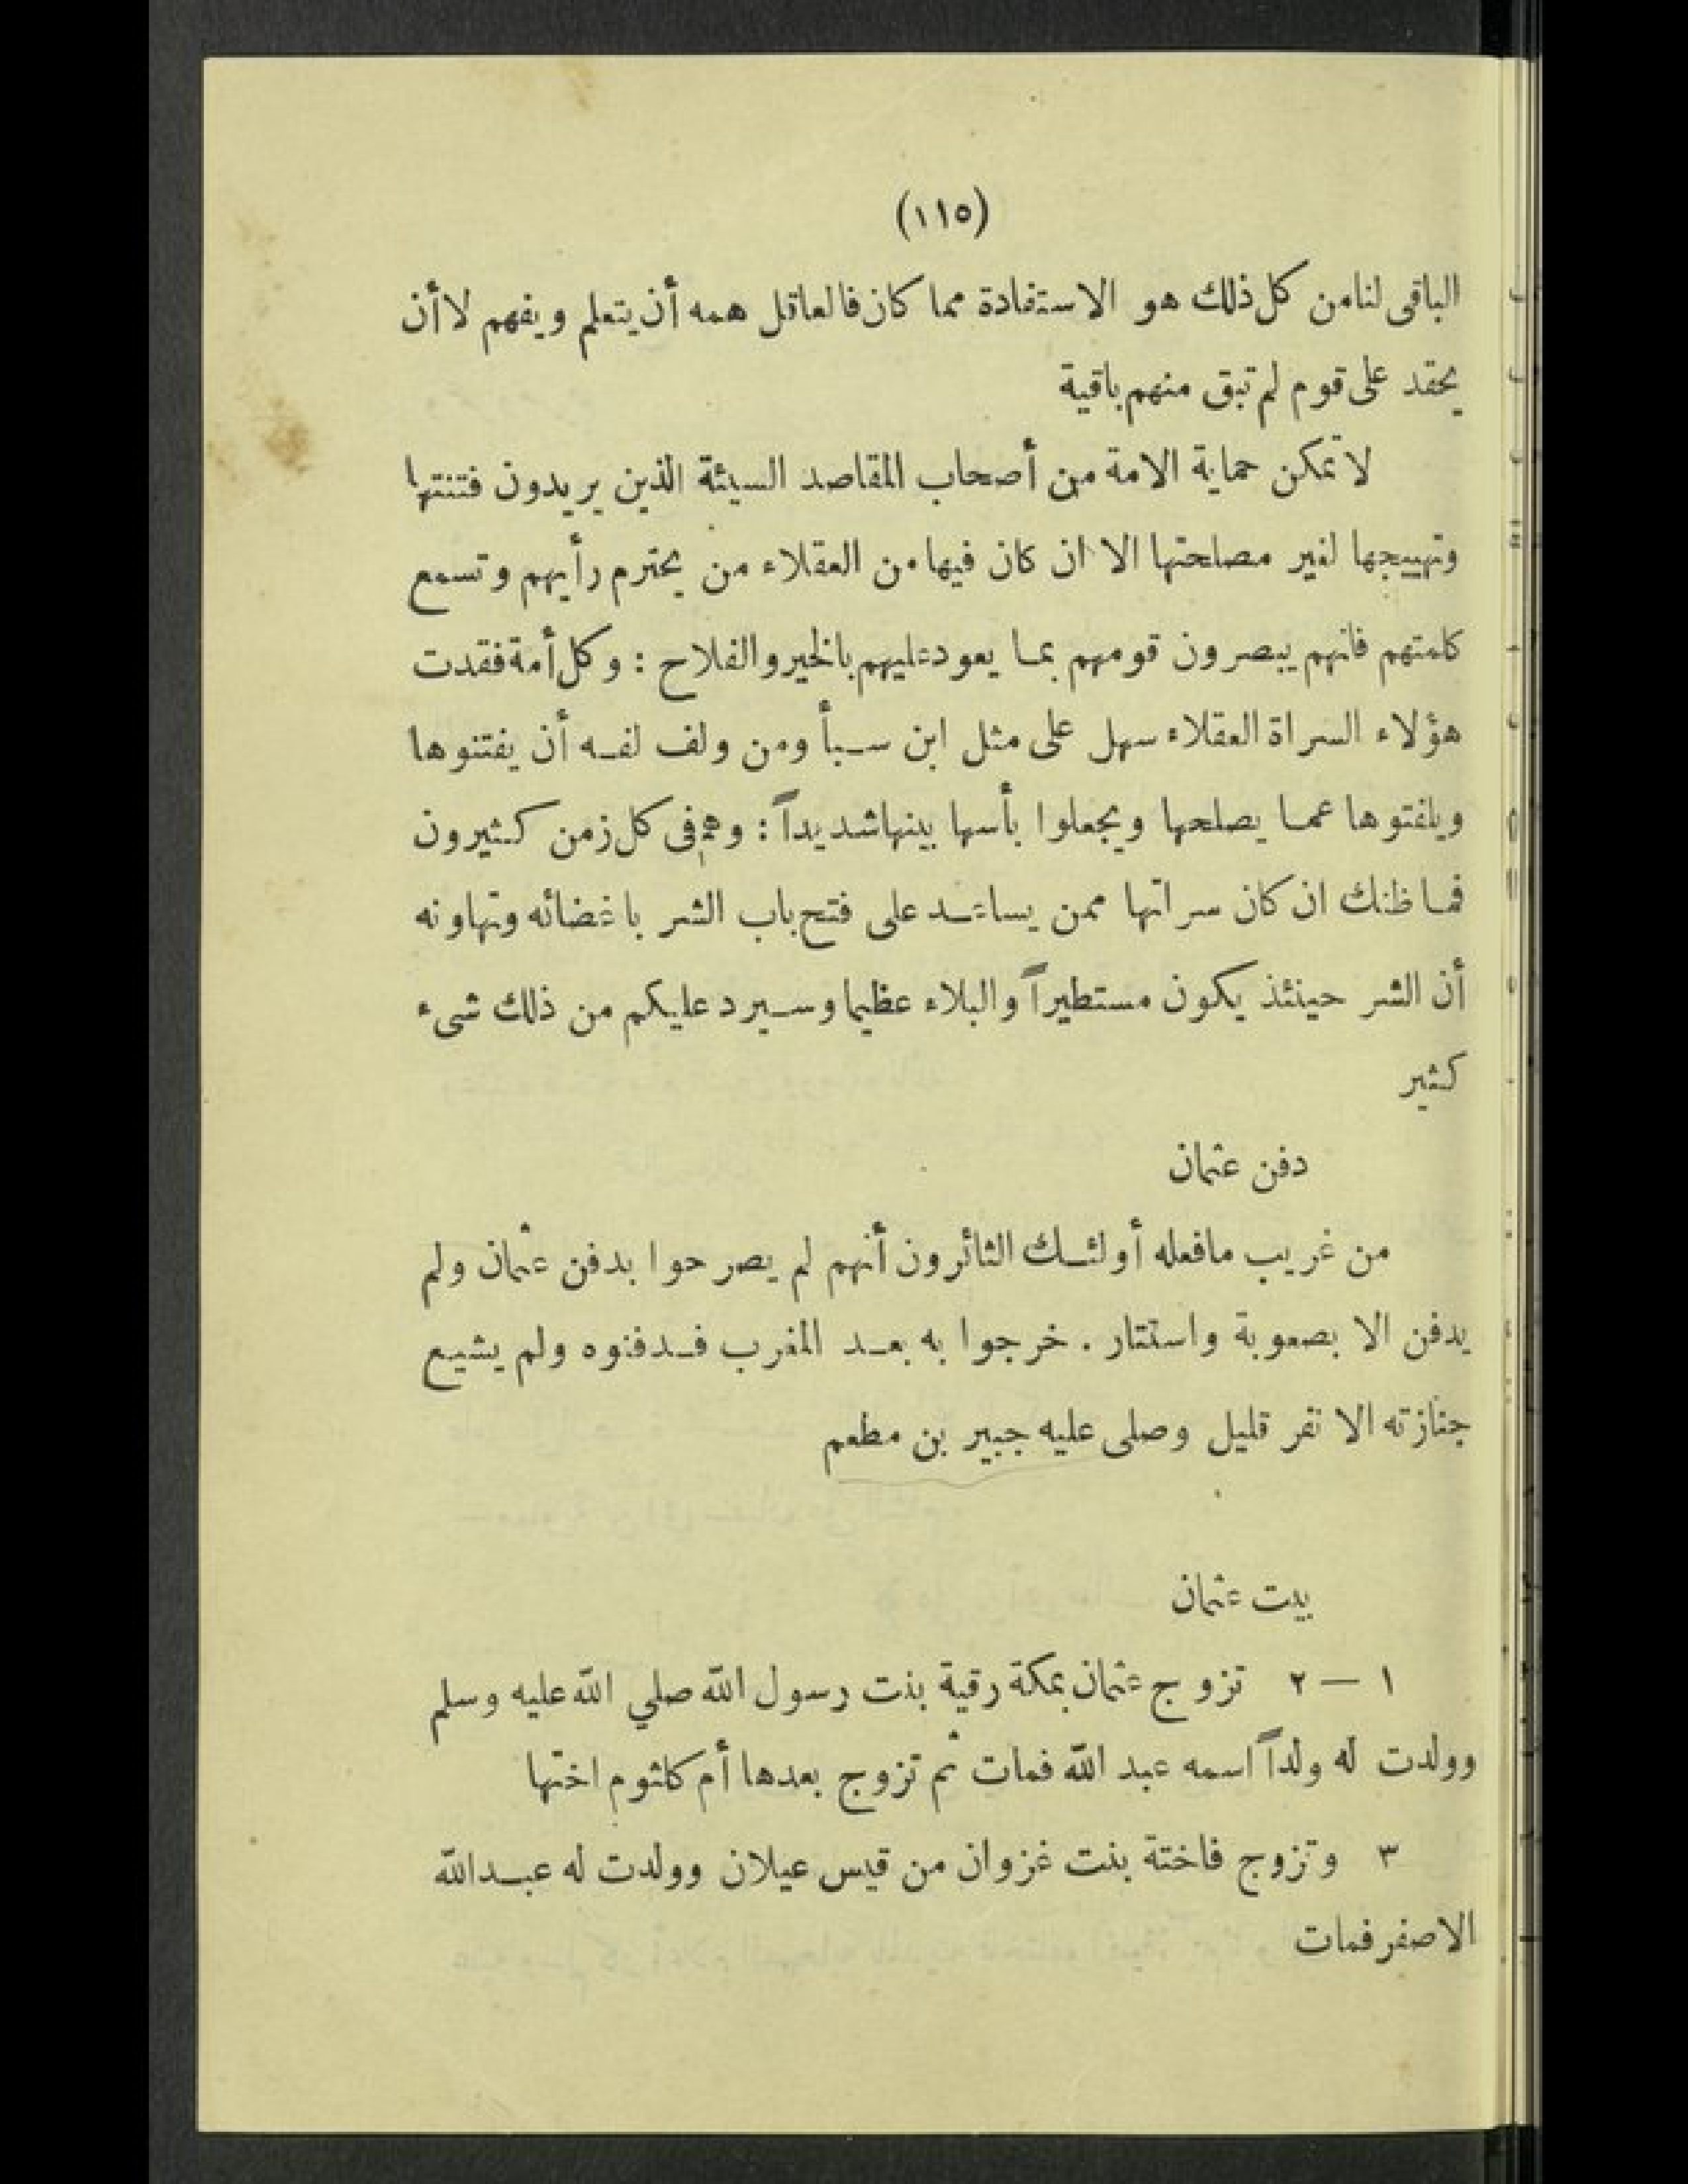 (١١٥)
الباقى لنا من كل ذلك هو الاستفادة مما كان فالعاقل همه أن يتعلم ويفهم لا أن
يحقد على قوم لم تبق منهم باقية
لا تمكن حماية الامة من أصحاب المقاصد السيئة الذين يريدون فتنتها
وتهييجها لغير مصلحتها الا ان كان فيها من العقلاء من يحترم رأيهم وتسمع
كلمتهم فانهم يبصرون قومهم بما يعود عليهم بالخير والفلاح : وكل أمة فقدت
هؤلاء السراة العقلاء سهل على مثل ابن سبأ ومن ولف لفه أن يفتنوها
ويلفتوها عما يصلحها ويجعلوا بأسها بينها شديداً : وهم فى كل زمن كثيرون
فما ظنك ان كان سراتها ممن يساعد على فتح باب الشر باغضائه وتهاونه
أن الشر حينئذ يكون مستطيراً والبلاء عظيما وسيرد عليكم من ذلك شىء
كثير
دفن عثمان
من غريب مافعله أولئك الثائرون أنهم لم يصرحوا بدفن عثمان ولم
يدفن الا بصعوبة واستتار . خرجوا به بعد المغرب فدفنوه ولم يشيع
جنازته الا نفر قليل وصلى عليه جبير بن مطعم
بيت عثمان
١ — ٢ تزوج عثمان بمكة رقية بنت رسول الله صلي الله عليه وسلم
وولدت له ولداً اسمه عبد الله فمات ثم تزوج بعدها أم كلثوم اختها
٣ وتزوج فاختة بنت غزوان من قيس عيلان وولدت له عبد الله
الاصغر فمات